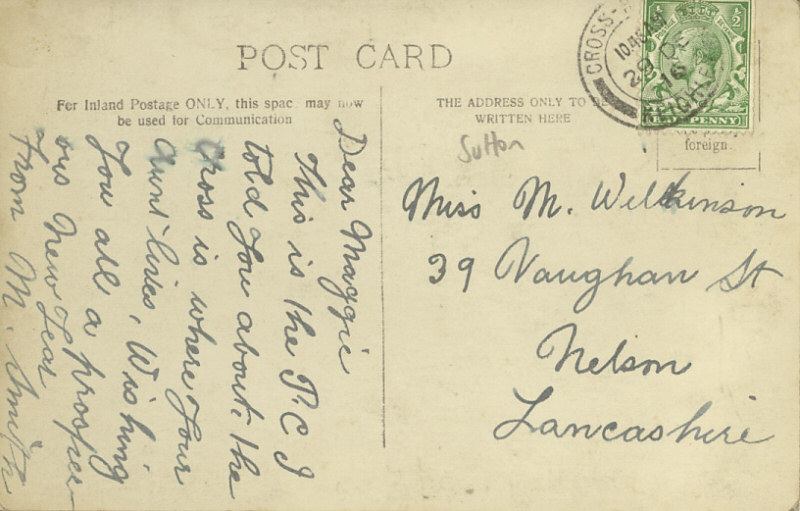 POST CARD
For Inland Postage ONLY, this spac may now
be used for Communication
THE ADDRESS ONLY TO BE
WRITTEN HERE
foreign.
CROSS-
KEIGHLEY
10 AM
29 DE
16
PENNY
Sutton
Miss M. Wilkinson
39 Vaughan St
Nelson
Lancashire
Dear Maggie
This is the P.C I
told you about. the
Cross is where your
Aunt lives, Wishing
You all a prosper-
ous New Year
From M. Smith